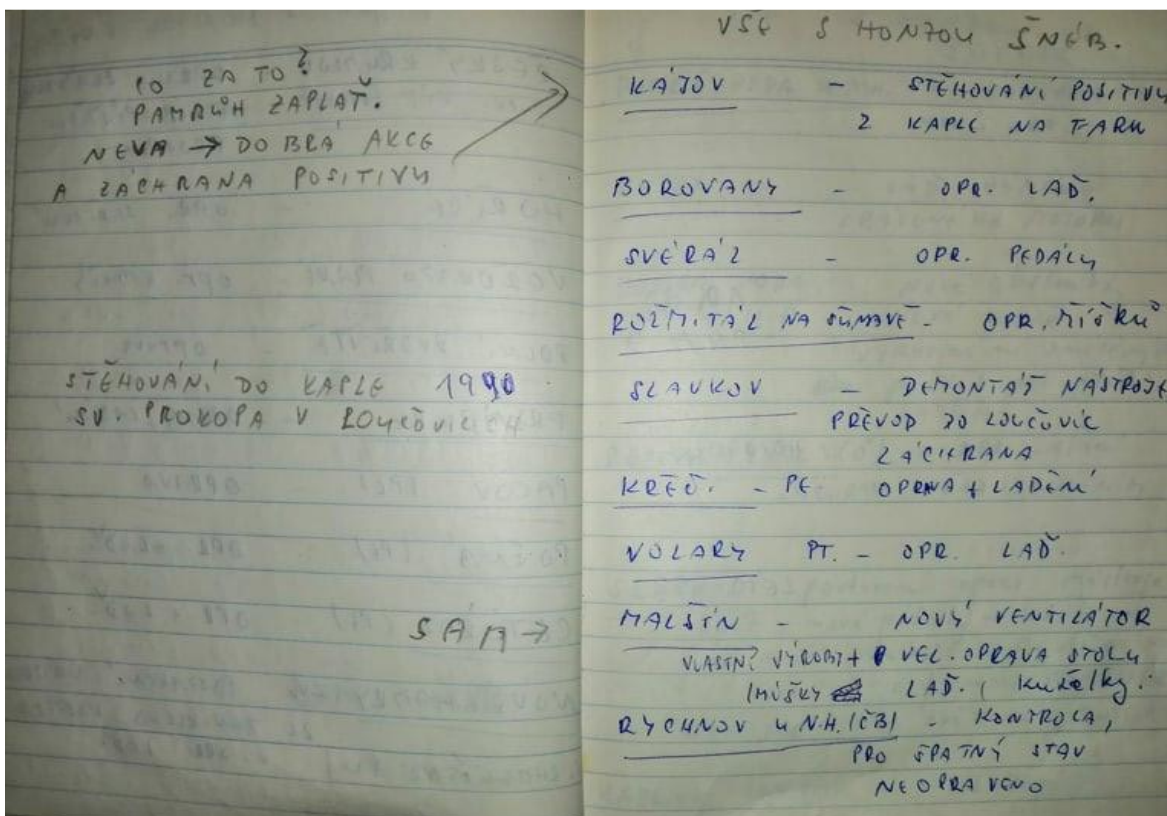 CO ZA TO?
PÁMBŮH ZAPLAŤ.
NEVA → DOBRÁ AKCE
A ZÁCHRANA POSITIVU
STĚHOVÁNÍ DO KAPLE 1990
SV. PROKOPA V LOUČOVICÍCH
SÁM →
VŠE S HONZOU ŠNÉB.
KÁJOV – STĚHOVÁNÍ POSITIVU
Z KAPLE NA FARU
BOROVANY – OPR. LAD.
SVÉRÁZ – OPR. PEDÁLU
ROŽMITÁL NA ŠUMAVĚ – OPR. MÍŠKŮ
SLAVKOV – DEMONTÁŽ NÁSTROJE
PŘEVOD DO LOUČOVIC
ZÁCHRANA
KŘEČ. – PE. OPRAVA + LADĚNÍ
VOLARY PT. – OPR. LAD.
MALŠÍN – NOVÝ VENTILÁTOR
VLASTNÍ VÝROBY + VEL. OPRAVA STOLU
(MÍŠKY LAD. (Kuželky.
RYCHNOV u N.H. (ČB) – KONTROLA,
PRO ŠPATNÝ STAV
NEOPRAVENO